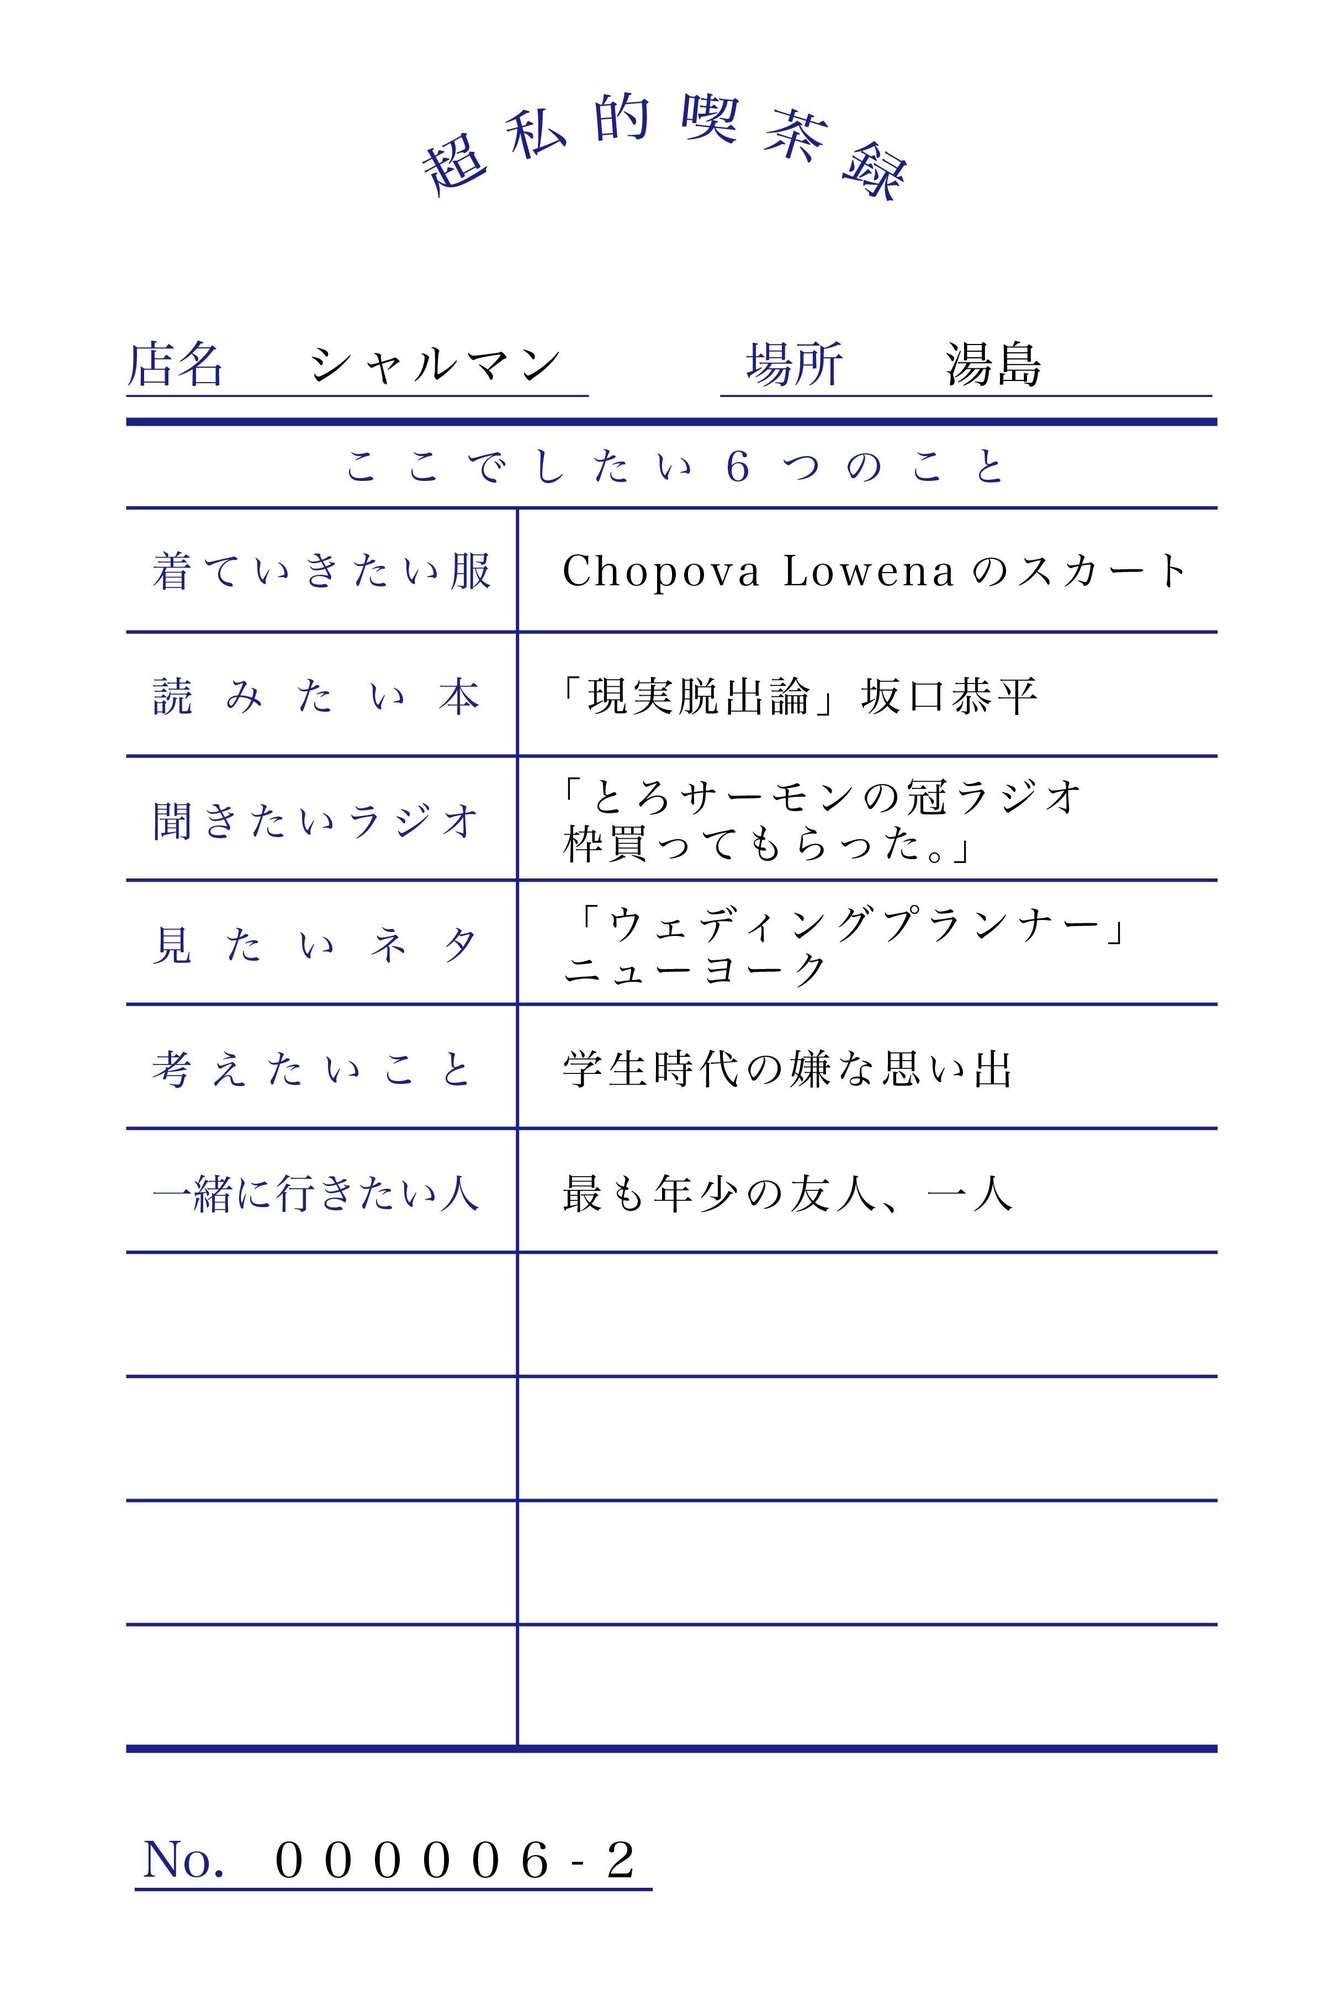 超私的喫茶録
店名 シャルマン 場所 湯島
ここでしたい6つのこと
着ていきたい服 Chopova Lowenaのスカート
読みたい本 「現実脱出論」坂口恭平
聞きたいラジオ 「とろサーモンの冠ラジオ
枠買ってもらった。」
見たいネタ 「ウェディングプランナー」
ニューヨーク
考えたいこと 学生時代の嫌な思い出
一緒に行きたい人 最も年少の友人、一人
No. 000006-2